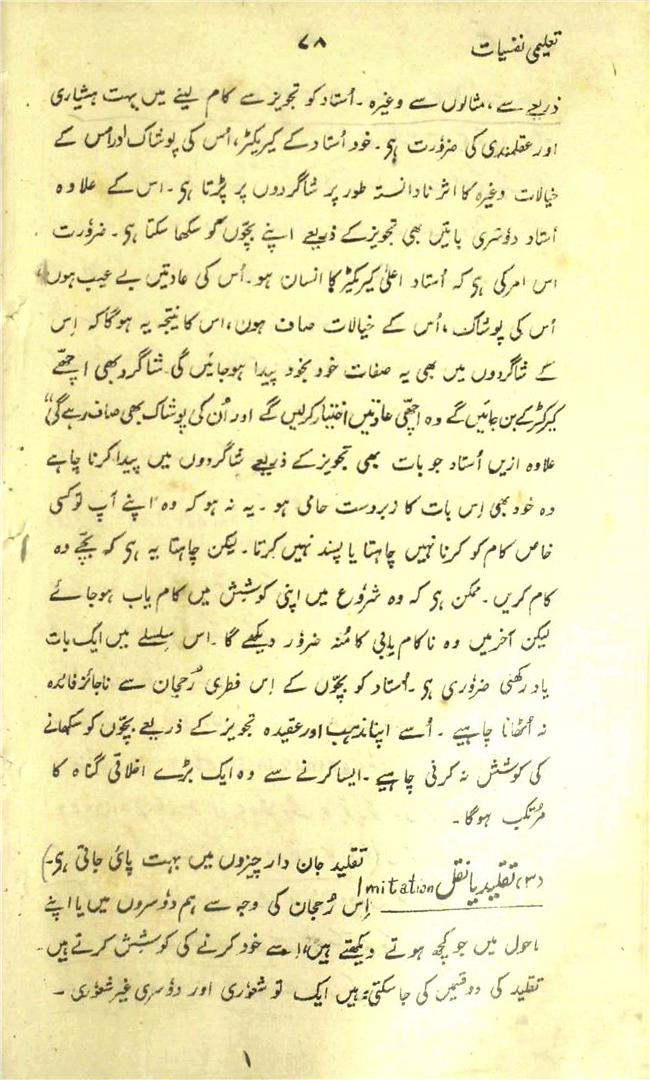 تعلیمی نفسیات ۷۸
ذریعے سے، مثالوں سے وغیرہ۔ اُستاد کو تجویز سے کام لینے میں بہت ہشیاری
اور عقلمندی کی ضرورت ہی۔ خود اُستاد کے کیریکٹر، اُس کی پوشاک اور اُس کے
خیالات وغیرہ کا اثر نادانستہ طور پر شاگردوں پر پڑتا ہی۔ اس کے علاوہ
اُستاد دوسری باتیں بھی تجویز کے ذریعے اپنے بچّوں کو سکھا سکتا ہی۔ ضرورت
اس امر کی ہی کہ اُستاد اعلیٰ کیریکٹر کا انسان ہو۔ اُس کی عادتیں بے عیب ہوں،
اُس کی پوشاک، اُس کے خیالات صاف ہوں، اس کا نتیجہ یہ ہوگا کہ اِس
کے شاگردوں میں بھی یہ صفات خود بخود پیدا ہوجائیں گی۔ شاگرد بھی اچھّے
کیرکٹر کے بن جائیں گے وہ اچھّی عادتیں اختیار کرلیں گے اور اُن کی پوشاک بھی صاف رہے گی"
علاوہ ازیں اُستاد جو بات بھی تجویز کے ذریعے شاگردوں میں پیدا کرنا چاہے
وہ خود بھی اِس بات کا زبردست حامی ہو۔ یہ نہ ہو کہ وہ اپنے آپ تو کسی
خاص کام کو کرنا نہیں چاہتا یا پسند نہیں کرتا۔ لیکن چاہتا یہ ہی کہ بچّے وہ
کام کریں۔ ممکن ہی کہ وہ شروع میں اپنی کوشش میں کام یاب ہوجائے
لیکن آخر میں وہ ناکام یابی کا مُنہ ضرور دیکھے گا۔ اس سلسلے میں ایک بات
یاد رکھنی ضروری ہی۔ اُستاد کو بچّوں کے اِس فطری رُحجان سے ناجائز فایدہ
نہ اُٹھانا چاہیے۔ اُسے اپنا مذہب اور عقیدہ تجویز کے ذریعے بچّوں کو سکھانے
کی کوشش نہ کرنی چاہیے۔ ایسا کرنے سے وہ ایک بڑے اخلاقی گناہ کا
مرُتکب ہوگا۔
(۳) تقلید یا نقل Imitation تقلید جان دار چیزوں میں بہت پائی جاتی ہی۔)
اِس رُحجان کی وجہ سے ہم دوسروں میں یا اپنے
ماحول میں جو کچھ ہوتے دیکھتے ہیں، اسے خود کرنے کی کوشش کرتے ہیں۔
تقلید کی دو قسمیں کی جاسکتی ہیں ایک تو شعوری اور دوسری غیر شعوری۔